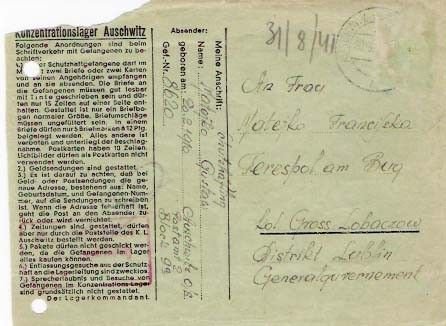 Konzentrationslager Auschwitz
Folgende Anordnungen sind beim
Schriftverkehr mit Gefangenen zu be-
achten:
Schutzhaftgefangene darf im
zwei Briefe oder zwei Karten
von seinen Angehörigen empfangen
und an sie absenden. Die Briefe an
die Gefangenen müssen gut lesbar
mit Tinte geschrieben sein und dürfen
nur 15 Zeilen auf einer Seite ent-
halten. Gestattet ist nur ein Briefbo-
gen normaler Größe. Briefumschläge
müssen ungefüttert sein. In einem
Briefe dürfen nur 5 Briefmarken à 12 Pfg.
beigelegt werden. Alles andere ist
verboten und unterliegt der Beschlag-
nahme. Postkarten haben 10 Zeilen.
Lichtbilder dürfen als Postkarten nicht
verwendet werden.
2.) Geldsendungen sind gestattet.
3.) Es ist darauf zu achten, daß bei
Geld- oder Postsendungen die ge-
naue Adresse, bestehend aus: Name,
Geburtsdatum, und Gefangenen-Num-
mer, auf die Sendungen zu schreiben
ist. Wenn die Adresse fehlerhaft ist,
geht die Post an den Absender zu-
rück oder wird vernichtet.
4.) Zeitungen sind gestattet, dürfen
aber nur durch die Poststelle des K. L.
Auschwitz bestellt werden.
5.) Pakete dürfen nicht geschickt wer-
den, da die Gefangenen im Lager
alles kaufen können.
6.) Entlassungsgesuche aus der Schutz-
haft an die Lagerleitung sind zwecklos.
7.) Sprecherlaubnis und Besuche von
Gefangenen im Konzentrations-Lager
sind grundsätzlich nicht gestattet.
Der Lagerkommandant.
Absender:
Meine Anschrift:
Name:
geboren am:
Gef.-Nr.
Auschwitz O.S.
Postamt 2
31/8/41
An Frau
Franciszka
am Bug
Kol. Gross
Distrikt Lublin
Generalgouvernement